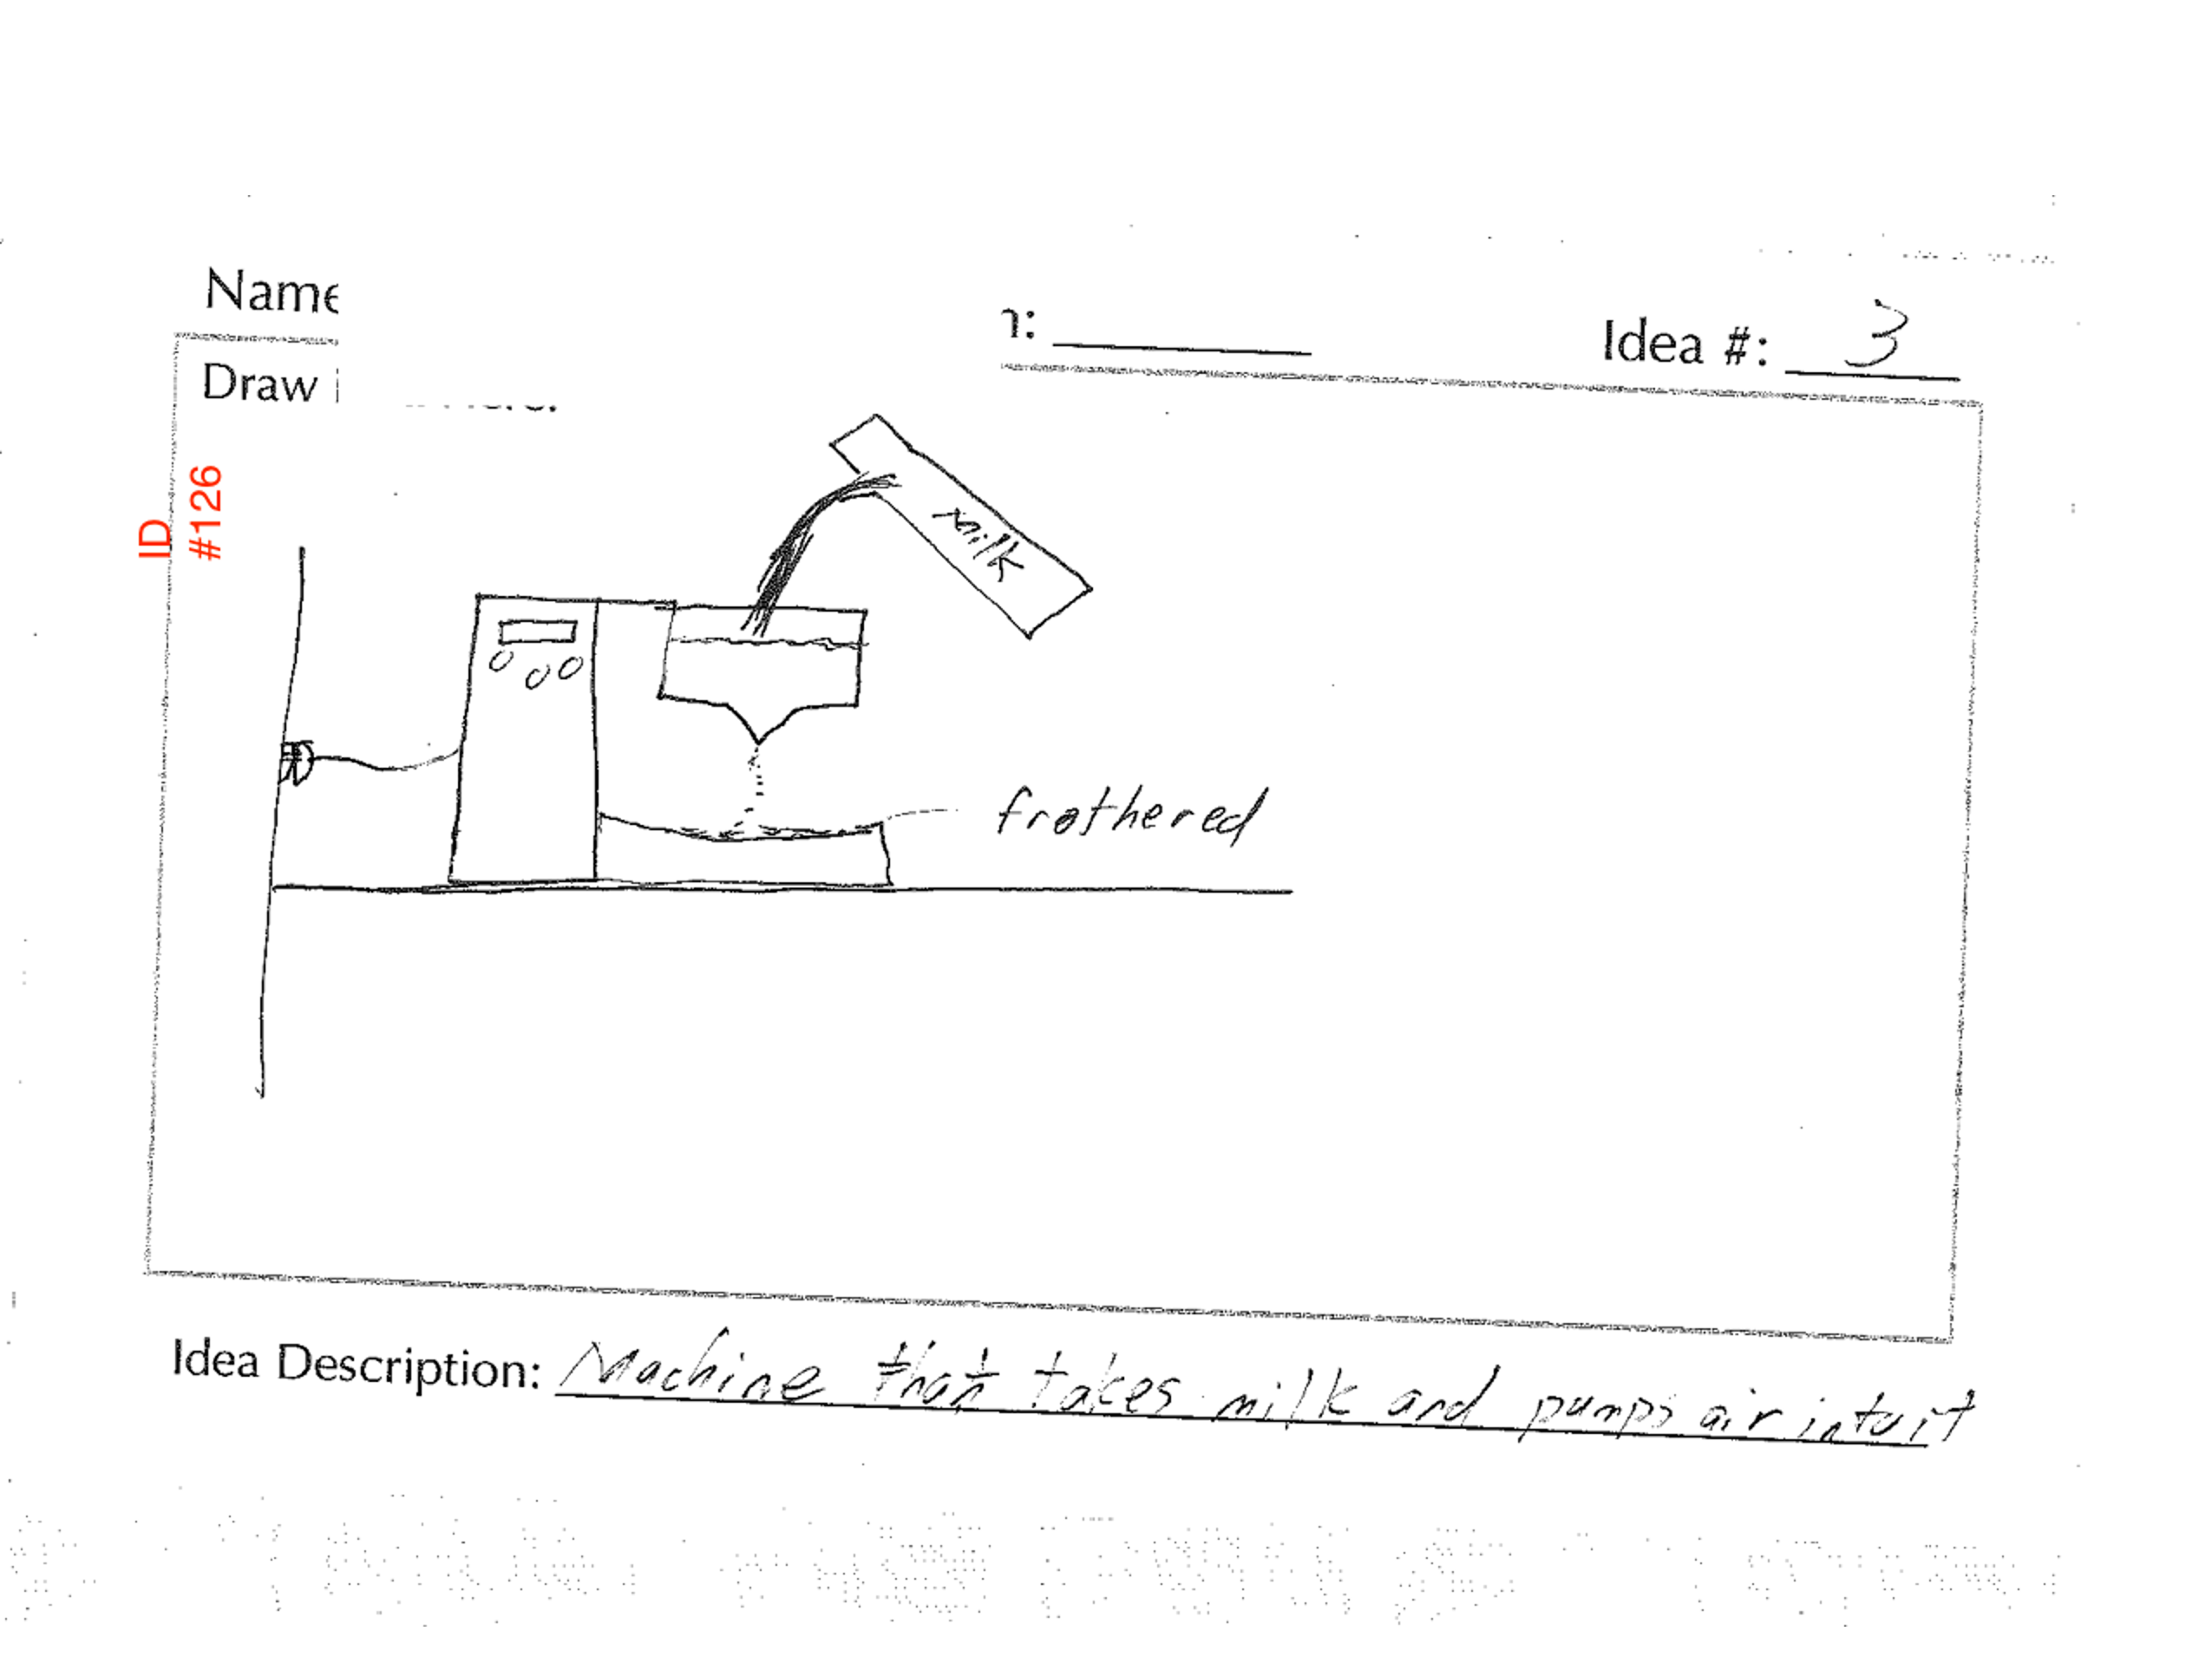 Name
n: Idea #: 3
Draw
ID
#126
milk
frothered
Idea Description: Machine that takes milk and pumps air into it